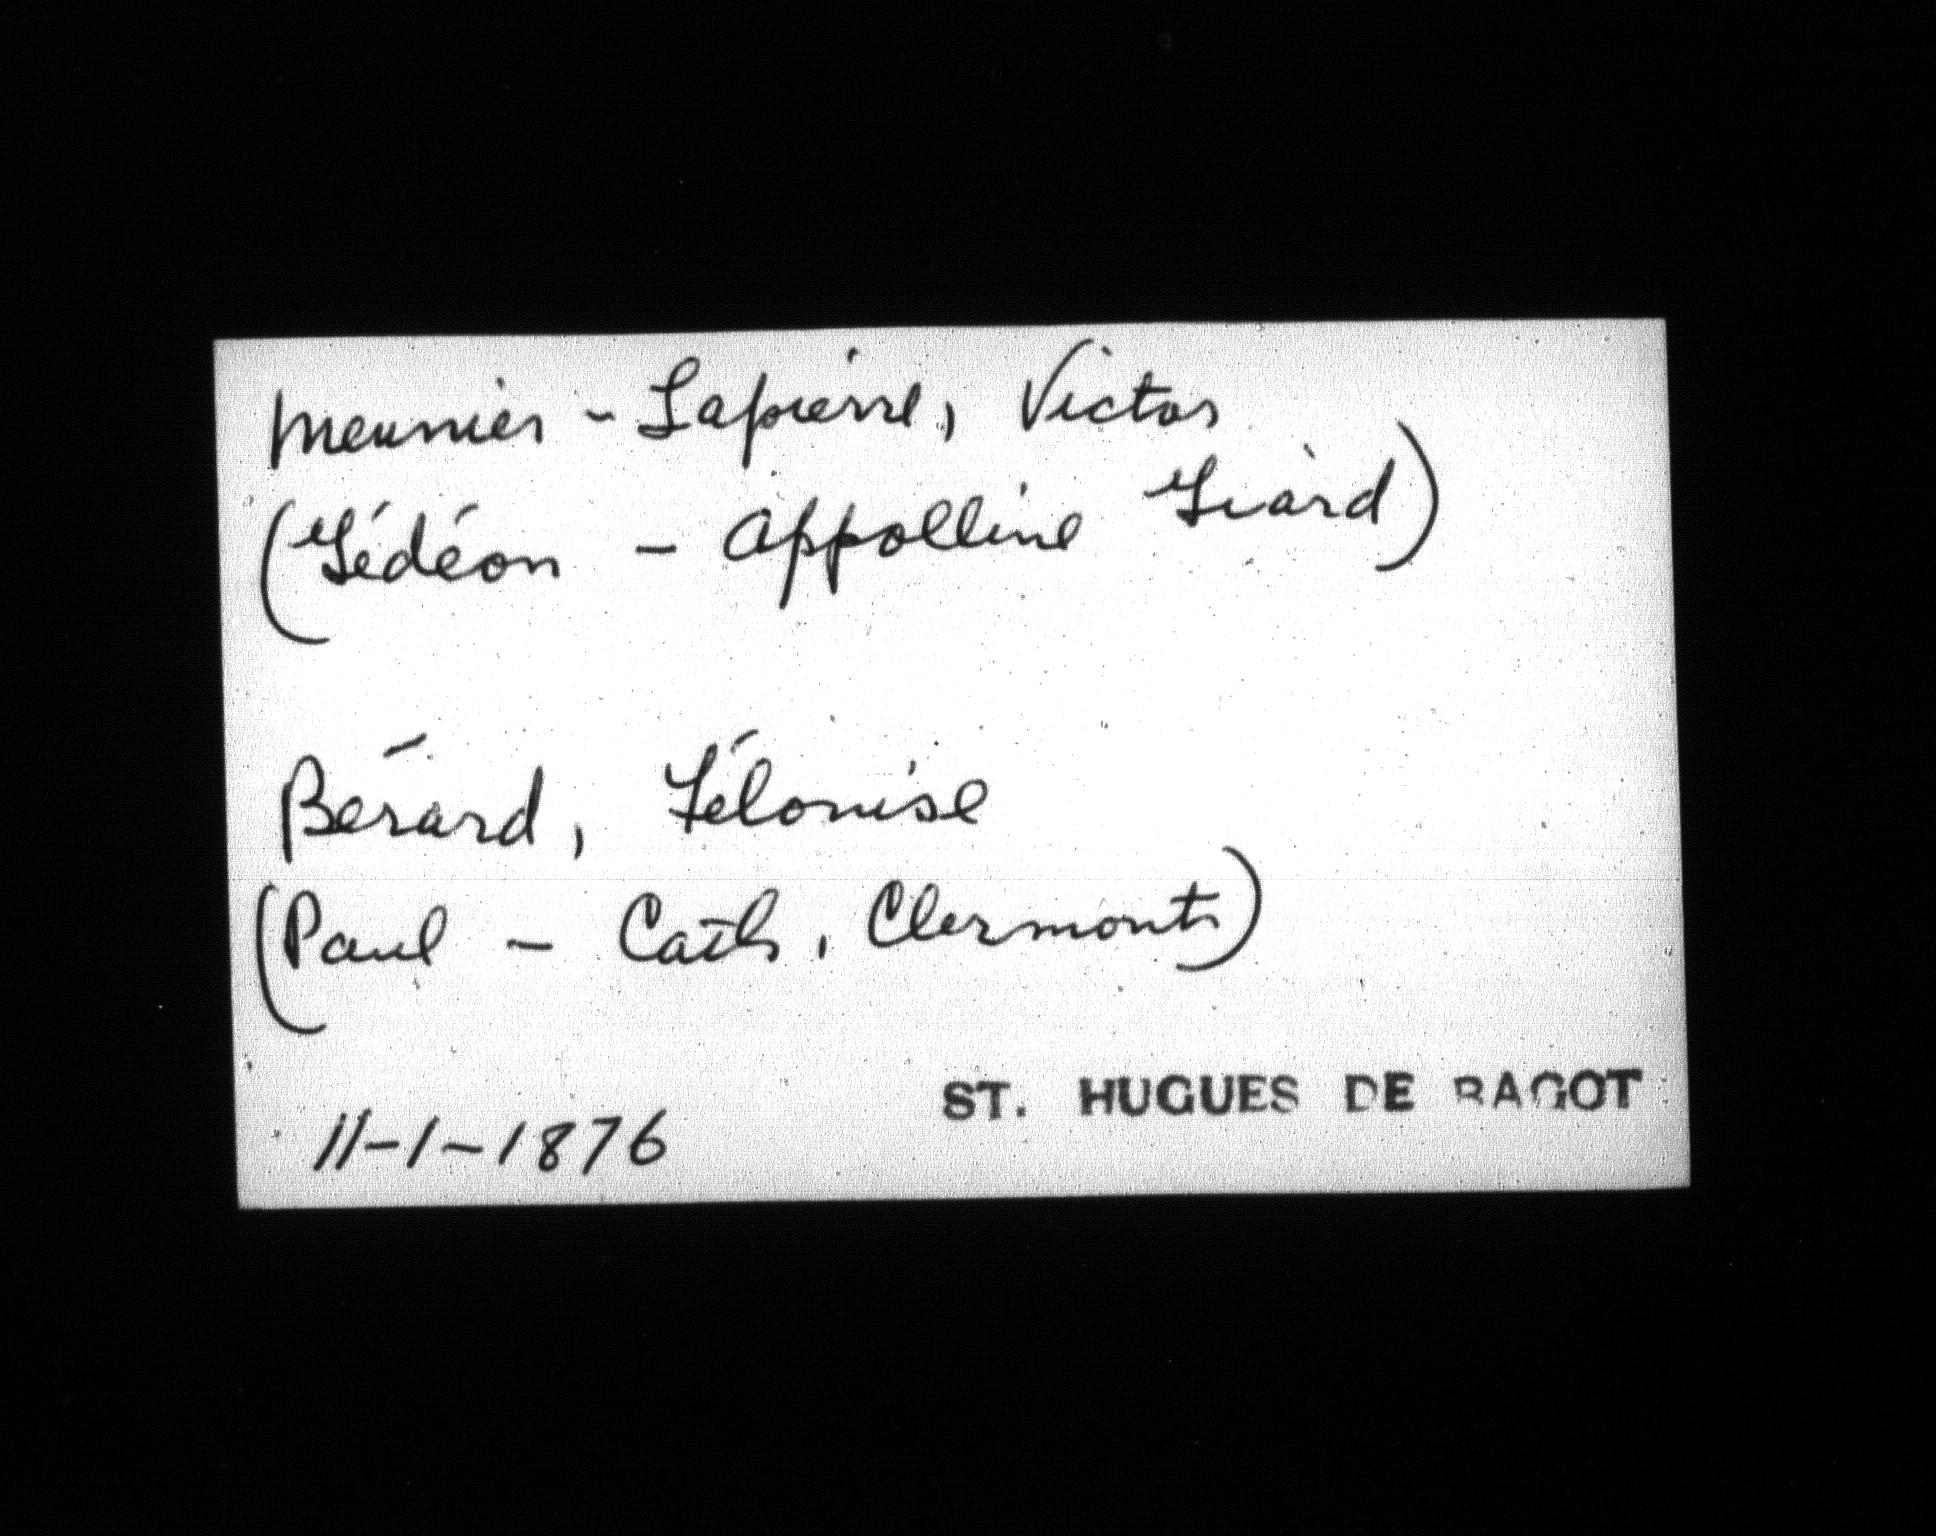 Meunier - Lapierre, Victor
(Gédéon - Appolline Giard)
Bérard, Félonise
(Paul - Cath, Clermont)
11-1-1876
ST. HUGUES DE BAGOT